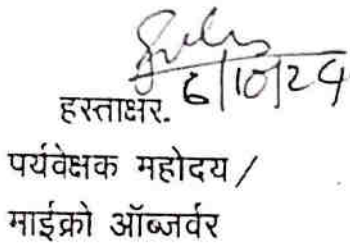 6/10/24
हस्ताक्षर.
पर्यवेक्षक महोदय /
माईक्रो ऑब्जर्वर